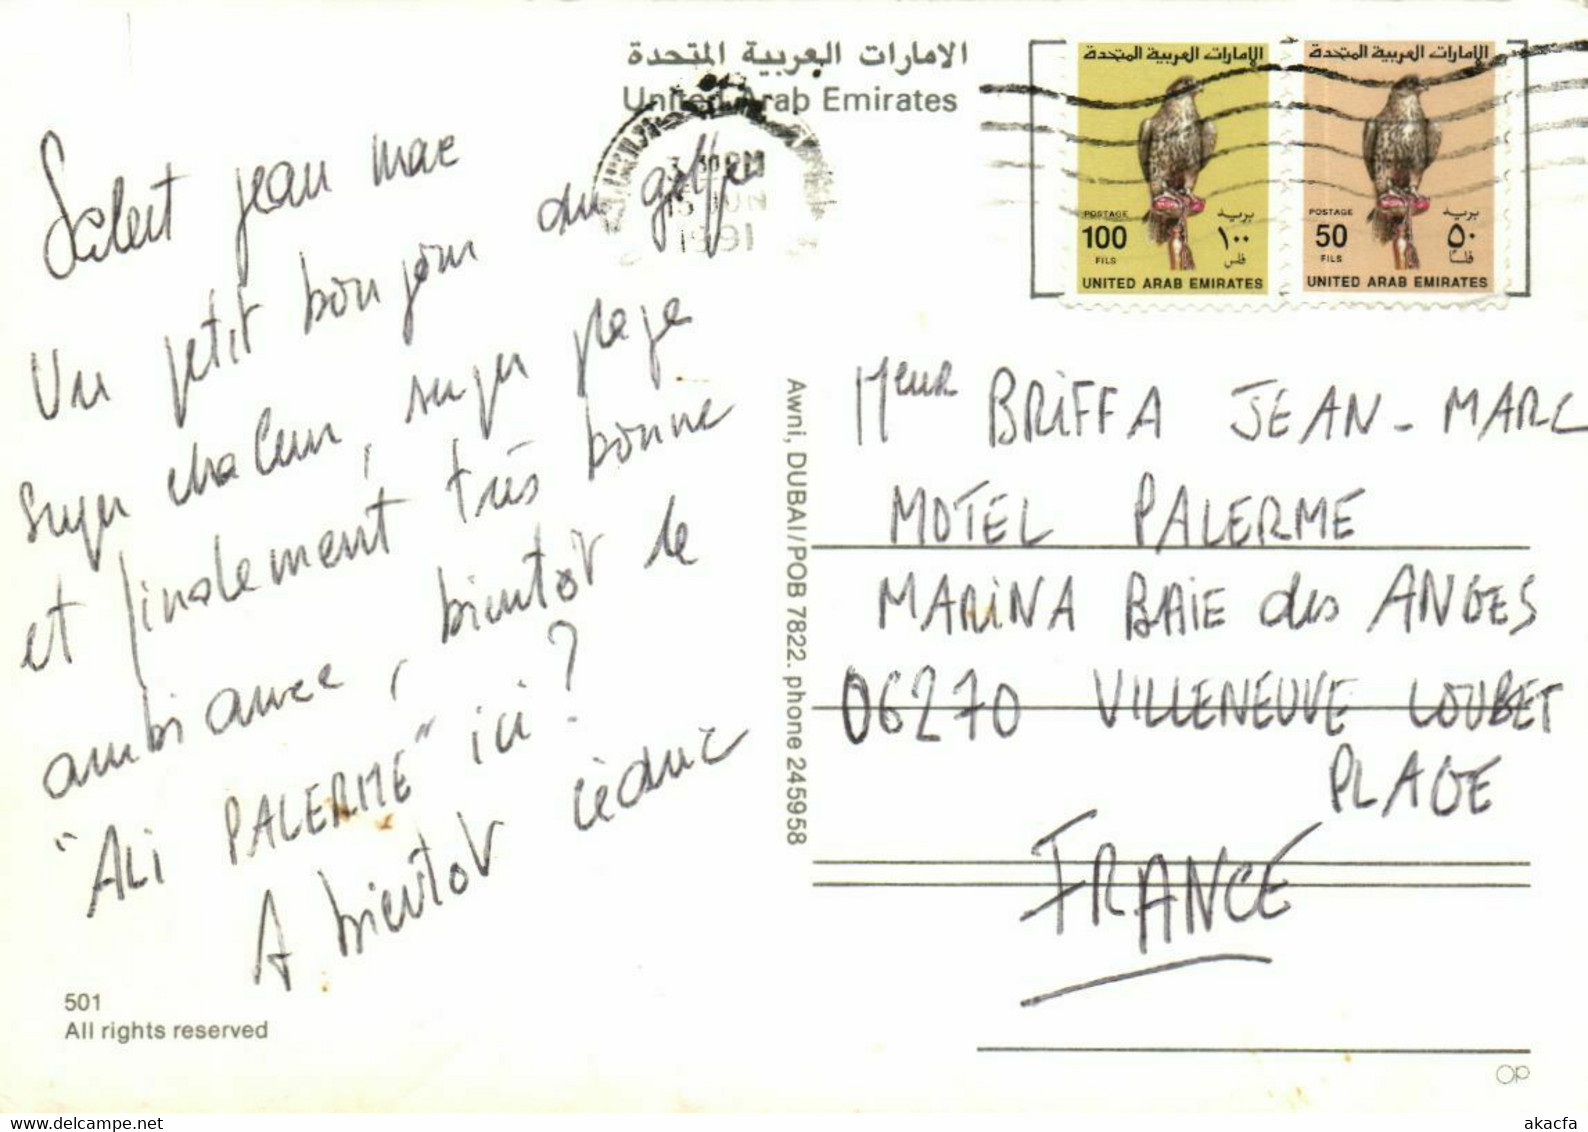 الامارات العربية المتحدة
United Arab Emirates
3 30 PM
JUN
1991
الإمارات العربية المتحدة
POSTAGE بريد
100 ١٠٠
FILS فلس
UNITED ARAB EMIRATES
الإمارات العربية المتحدة
POSTAGE بريد
50 ٥٠
FILS فلسا
UNITED ARAB EMIRATES
Salut jean marc
Un petit bonjour du golfe
super chaleur, super plage
et finalement très bonne
ambiance, bientôt le
"ALI PALERME" ici ?
A bientôt Cédric
501
All rights reserved
Awni, DUBAI/POB 7822. phone 245958
Meur BRIFFA JEAN-MARC
MOTEL PALERME
MARINA BAIE des ANGES
06270 VILLENEUVE LOUBET
PLAGE
FRANCE
OP
www.delcampe.net
akacfa